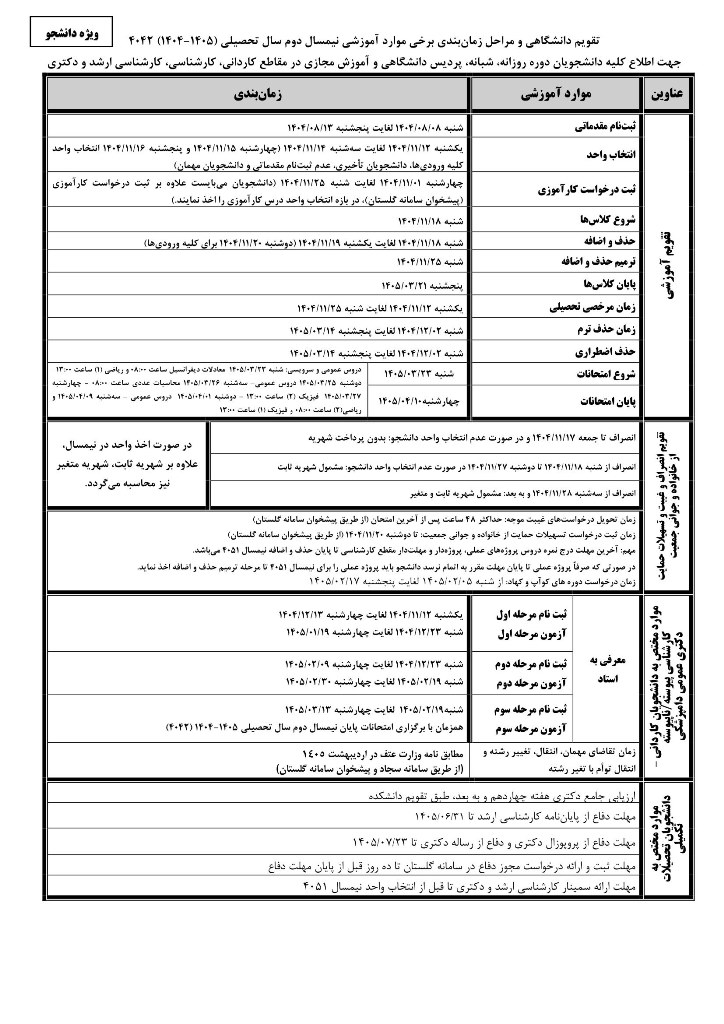 ویژه دانشجو
تقویم دانشگاهی و مراحل زمان‌بندی برخی موارد آموزشی نیمسال دوم سال تحصیلی (۱۴۰۵-۱۴۰۴) ۴۰۴۲
جهت اطلاع کلیه دانشجویان دوره روزانه، شبانه، پردیس دانشگاهی و آموزش مجازی در مقاطع کاردانی، کارشناسی، کارشناسی ارشد و دکتری
عناوین
موارد آموزشی
زمان‌بندی
تقویم آموزشی
ثبت‌نام مقدماتی
شنبه ۱۴۰۴/۰۸/۰۸ لغایت پنجشنبه ۱۴۰۴/۰۸/۱۳
انتخاب واحد
یکشنبه ۱۴۰۴/۱۱/۱۲ لغایت سه‌شنبه ۱۴۰۴/۱۱/۱۴ (چهارشنبه ۱۴۰۴/۱۱/۱۵ و پنجشنبه ۱۴۰۴/۱۱/۱۶ انتخاب واحد
کلیه ورودی‌ها، دانشجویان تأخیری، عدم ثبت‌نام مقدماتی و دانشجویان مهمان)
ثبت درخواست کارآموزی
چهارشنبه ۱۴۰۴/۱۱/۰۱ لغایت شنبه ۱۴۰۴/۱۱/۲۵ (دانشجویان می‌بایست علاوه بر ثبت درخواست کارآموزی
(پیشخوان سامانه گلستان)، در بازه انتخاب واحد درس کارآموزی را اخذ نمایند.)
شروع کلاس‌ها
شنبه ۱۴۰۴/۱۱/۱۸
حذف و اضافه
شنبه ۱۴۰۴/۱۱/۱۸ لغایت یکشنبه ۱۴۰۴/۱۱/۱۹ (دوشنبه ۱۴۰۴/۱۱/۲۰ برای کلیه ورودی‌ها)
ترمیم حذف و اضافه
شنبه ۱۴۰۴/۱۱/۲۵
پایان کلاس‌ها
پنجشنبه ۱۴۰۵/۰۳/۲۱
زمان مرخصی تحصیلی
یکشنبه ۱۴۰۴/۱۱/۱۲ لغایت شنبه ۱۴۰۴/۱۱/۲۵
زمان حذف ترم
شنبه ۱۴۰۴/۱۲/۰۲ لغایت پنجشنبه ۱۴۰۵/۰۳/۱۴
حذف اضطراری
شنبه ۱۴۰۴/۱۲/۰۲ لغایت پنجشنبه ۱۴۰۵/۰۳/۱۴
شروع امتحانات
شنبه ۱۴۰۵/۰۳/۲۳
پایان امتحانات
چهارشنبه۱۴۰۵/۰۴/۱۰
دروس عمومی و سرویسی: شنبه ۱۴۰۵/۰۳/۲۳ معادلات دیفرانسیل ساعت ۰۸:۰۰ و ریاضی (۱) ساعت ۱۳:۰۰
دوشنبه ۱۴۰۵/۰۳/۲۵ دروس عمومی- سه‌شنبه ۱۴۰۵/۰۳/۲۶ محاسبات عددی ساعت ۰۸:۰۰ - چهارشنبه
۱۴۰۵/۰۳/۲۷ فیزیک (۲) ساعت ۱۳:۰۰ - دوشنبه ۱۴۰۵/۰۴/۰۱ دروس عمومی - سه‌شنبه ۱۴۰۵/۰۴/۰۹ و
ریاضی(۲) ساعت ۰۸:۰۰ و فیزیک (۱) ساعت ۱۳:۰۰
تقویم انصراف و غیبت و تسهیلات حمایت
از خانواده و جوانی جمعیت
انصراف تا جمعه ۱۴۰۴/۱۱/۱۷ و در صورت عدم انتخاب واحد دانشجو: بدون پرداخت شهریه
انصراف از شنبه ۱۴۰۴/۱۱/۱۸ تا دوشنبه ۱۴۰۴/۱۱/۲۷ در صورت عدم انتخاب واحد دانشجو: مشمول شهریه ثابت
انصراف از سه‌شنبه ۱۴۰۴/۱۱/۲۸ و به بعد: مشمول شهریه ثابت و متغیر
در صورت اخذ واحد در نیمسال،
علاوه بر شهریه ثابت، شهریه متغیر
نیز محاسبه می‌گردد.
زمان تحویل درخواست‌های غیبت موجه: حداکثر ۴۸ ساعت پس از آخرین امتحان (از طریق پیشخوان سامانه گلستان)
زمان ثبت درخواست تسهیلات حمایت از خانواده و جوانی جمعیت: تا دوشنبه ۱۴۰۴/۱۱/۲۰ (از طریق پیشخوان سامانه گلستان)
مهم: آخرین مهلت درج نمره دروس پروژه‌های عملی، پروژه‌دار و مهلت‌دار مقطع کارشناسی تا پایان حذف و اضافه نیمسال ۴۰۵۱ می‌باشد.
در صورتی که صرفاً پروژه عملی تا پایان مهلت مقرر به اتمام نرسد دانشجو باید پروژه عملی را برای نیمسال ۴۰۵۱ تا مرحله ترمیم حذف و اضافه اخذ نماید.
زمان درخواست دوره های کوآپ و کهاد: از شنبه ۱۴۰۵/۰۲/۰۵ لغایت پنجشنبه ۱۴۰۵/۰۲/۱۷
موارد مختص به دانشجویان کاردانی -
کارشناسی پیوسته /ناپیوسته
دکتری عمومی دامپزشکی
معرفی به
استاد
ثبت نام مرحله اول
آزمون مرحله اول
یکشنبه ۱۴۰۴/۱۱/۱۲ لغایت چهارشنبه ۱۴۰۴/۱۲/۱۳
شنبه ۱۴۰۴/۱۲/۲۳ لغایت چهارشنبه ۱۴۰۵/۰۱/۱۹
ثبت نام مرحله دوم
آزمون مرحله دوم
شنبه ۱۴۰۴/۱۲/۲۳ لغایت چهارشنبه ۱۴۰۵/۰۲/۰۹
شنبه ۱۴۰۵/۰۲/۱۹ لغایت چهارشنبه ۱۴۰۵/۰۲/۳۰
ثبت نام مرحله سوم
آزمون مرحله سوم
شنبه۱۴۰۵/۰۲/۱۹ لغایت چهارشنبه ۱۴۰۵/۰۳/۱۳
همزمان با برگزاری امتحانات پایان نیمسال دوم سال تحصیلی ۱۴۰۵-۱۴۰۴ (۴۰۴۲)
زمان تقاضای مهمان، انتقال، تغییر رشته و
انتقال توأم با تغیر رشته
مطابق نامه وزارت عتف در اردیبهشت ۱۴۰۵
(از طریق سامانه سجاد و پیشخوان سامانه گلستان)
موارد مختص به
دانشجویان تحصیلات
تکمیلی
ارزیابی جامع دکتری هفته چهاردهم و به بعد، طبق تقویم دانشکده
مهلت دفاع از پایان‌نامه کارشناسی ارشد تا ۱۴۰۵/۰۶/۳۱
مهلت دفاع از پروپوزال دکتری و دفاع از رساله دکتری تا ۱۴۰۵/۰۷/۲۳
مهلت ثبت و ارائه درخواست مجوز دفاع در سامانه گلستان تا ده روز قبل از پایان مهلت دفاع
مهلت ارائه سمینار کارشناسی ارشد و دکتری تا قبل از انتخاب واحد نیمسال ۴۰۵۱